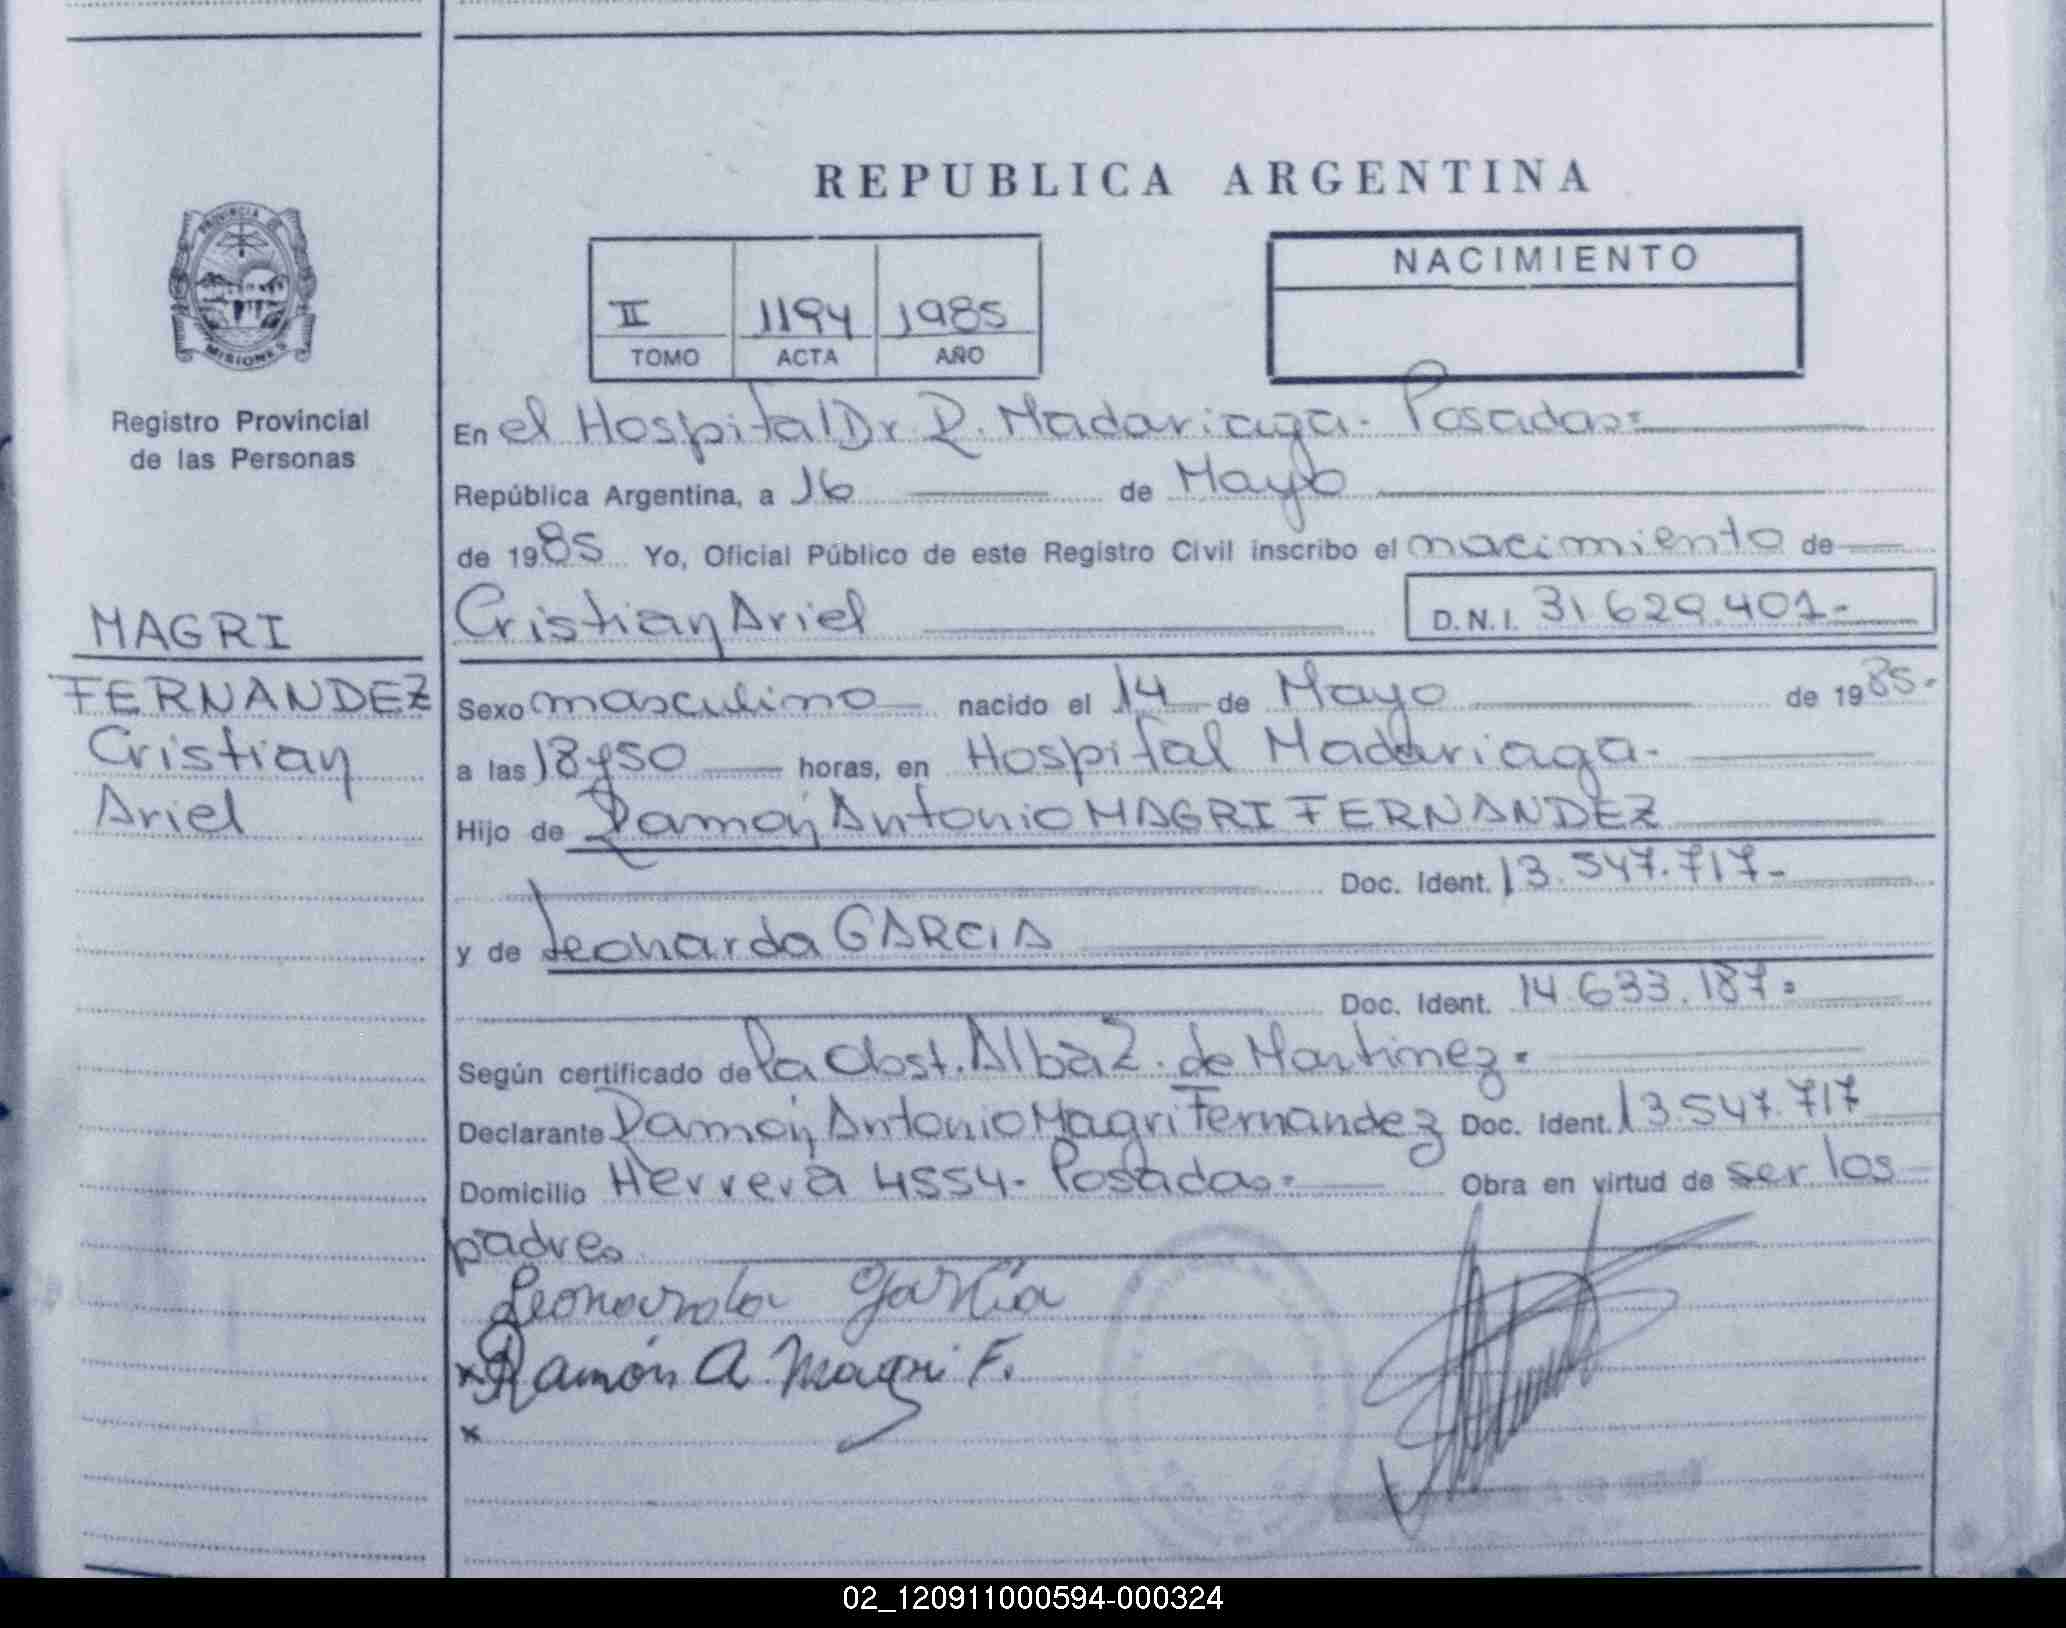 REPUBLICA ARGENTINA
PROVINCIA DE
MISIONES
Registro Provincial
de las Personas
MAGRI
FERNANDEZ
Cristian
Ariel
II 1194 1985
TOMO ACTA AÑO
NACIMIENTO
En el Hospital Dr. R. Madariaga. Posadas=
República Argentina, a 16 de Mayo
de 1985 Yo, Oficial Público de este Registro Civil inscribo el nacimiento de
Cristian Ariel D.N.I. 31.629.401.-
Sexo masculino nacido el 14 de Mayo de 1985.
a las 18y50 horas, en Hospital Madariaga.
Hijo de Ramón Antonio MAGRI FERNANDEZ
Doc. Ident. 13.547.717-
y de Leonarda GARCIA
Doc. Ident. 14.633.187=
Según certificado de la Obst. Alba Z. de Martinez.
Declarante Ramón Antonio Magri Fernandez Doc. Ident. 13.547.717
Domicilio Herrera 4554. Posadas= Obra en virtud de ser los
padres
Leonarda García
x Ramón A. Magri F.
x
02_120911000594-000324